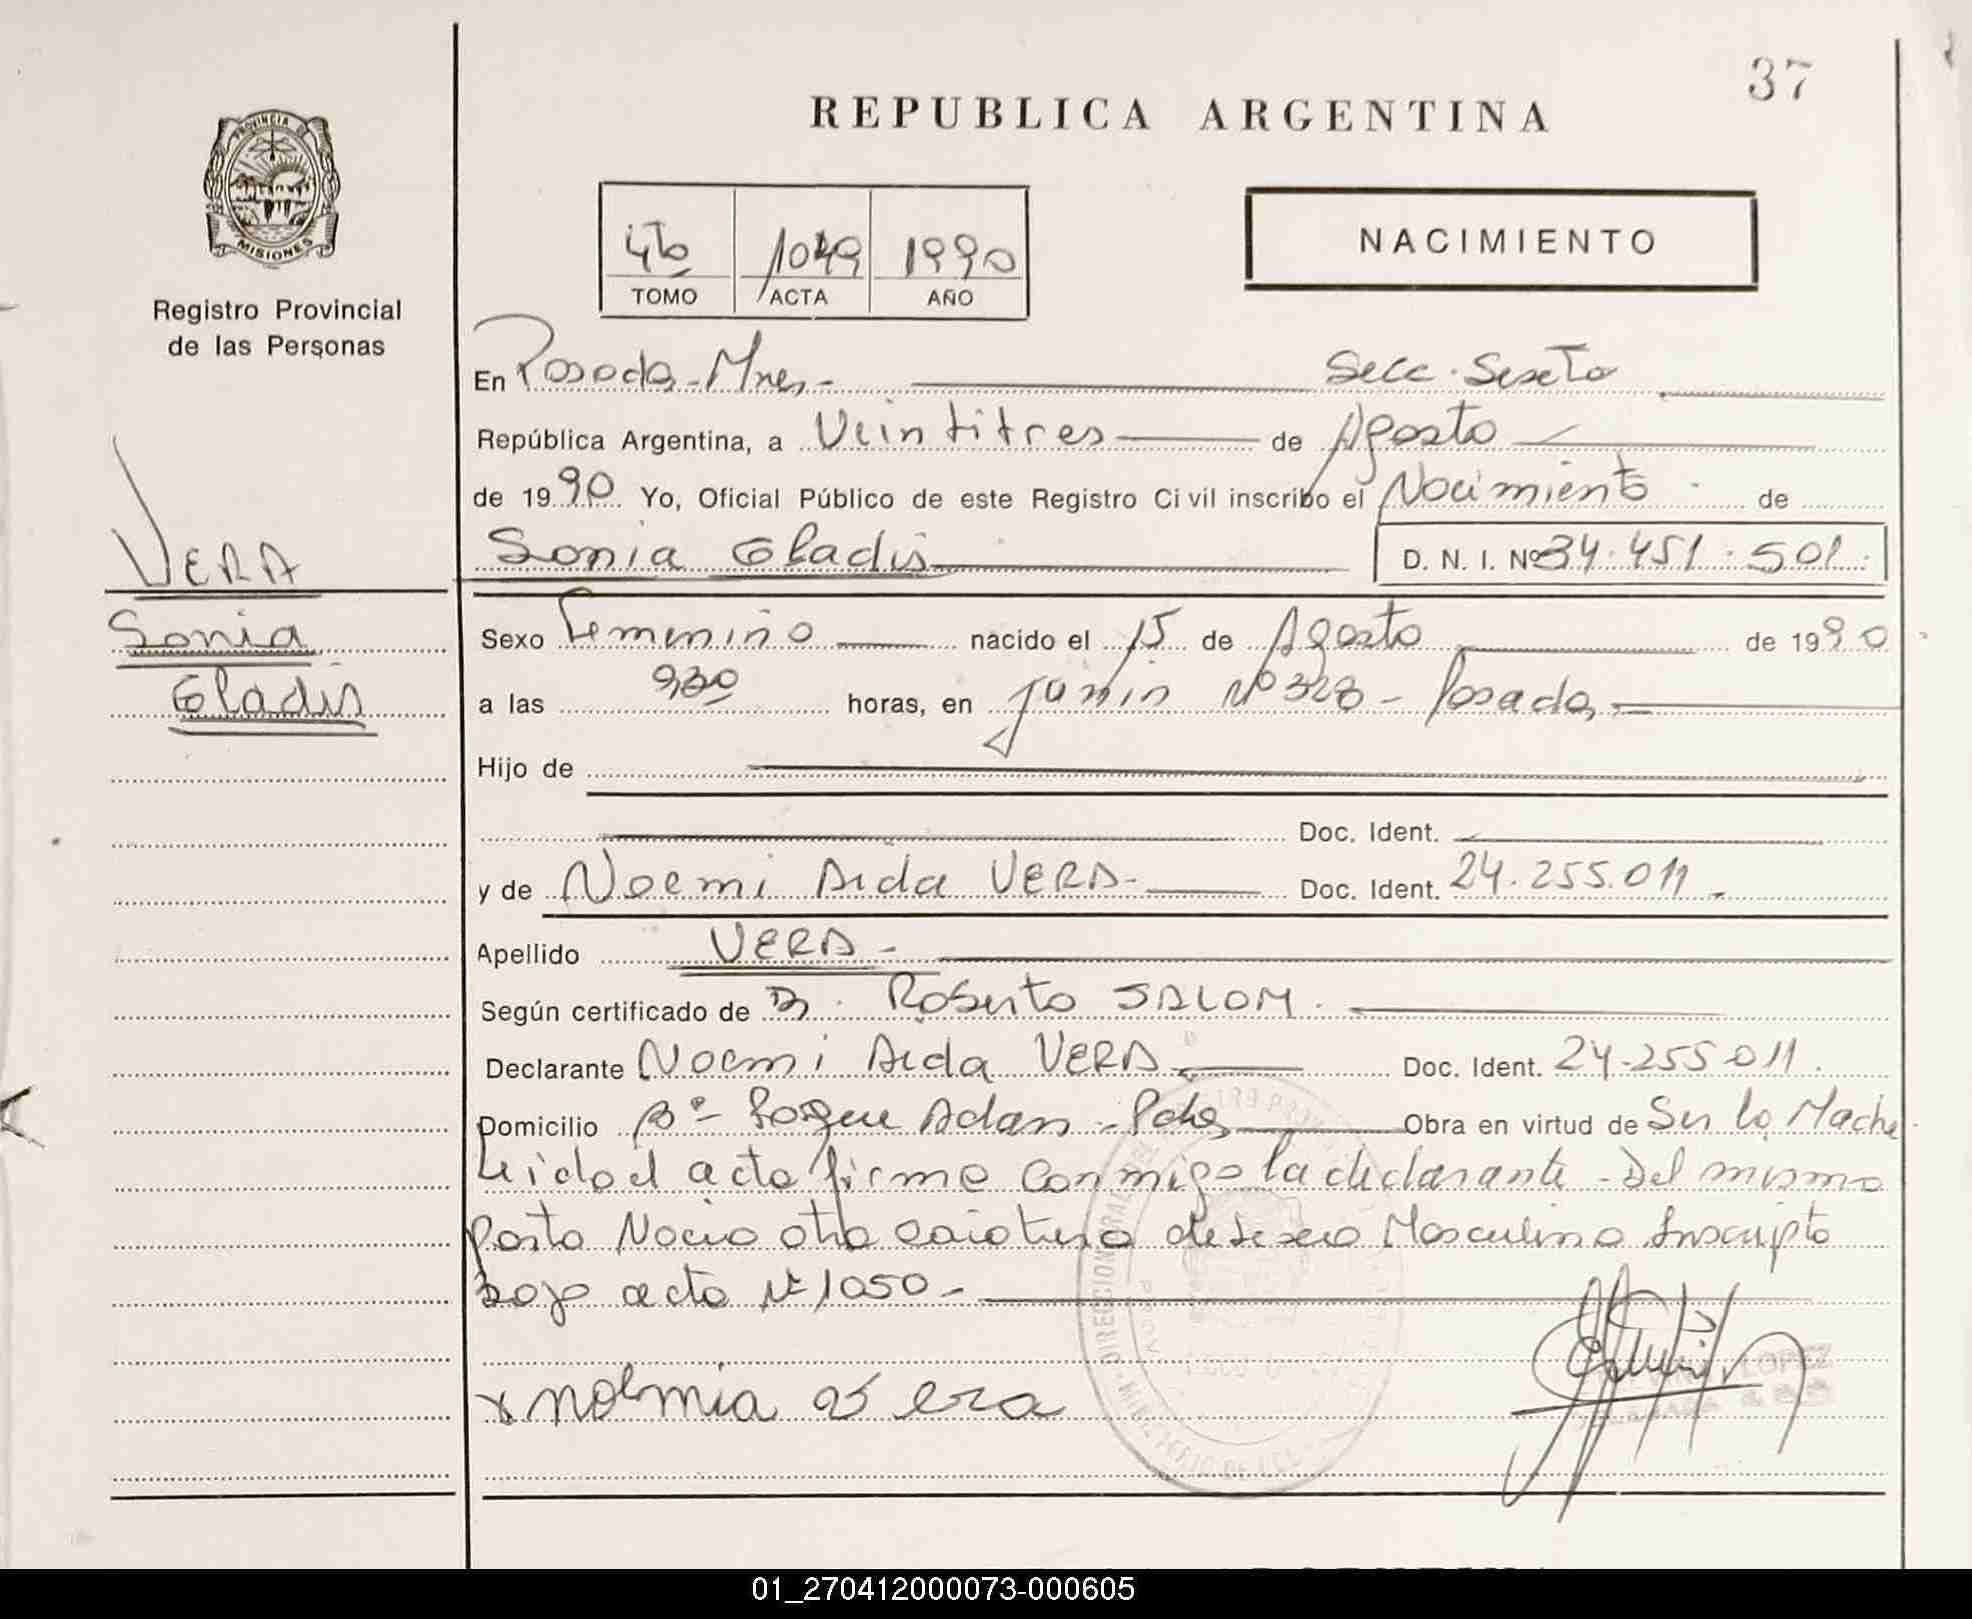 37
REPUBLICA ARGENTINA
PROVINCIA
MISIONES
Registro Provincial
de las Personas
4to 1049 1990
TOMO ACTA AÑO
NACIMIENTO
En Posadas - Mnes - Secc. Sexeta
República Argentina, a Veintitres de Agosto
de 1990 Yo, Oficial Público de este Registro Civil inscribo el Nacimiento de
VERA
Sonia Gladis
Sonia Gladis D. N. I. Nº 34.451.501.
Sexo Femenino nacido el 15 de Agosto de 1990
a las 9,30 horas, en Junin Nº 328 - Posadas
Hijo de
Doc. Ident.
y de Noemi Aida VERA - Doc. Ident. 24.255.011 -
Apellido VERA -
Según certificado de Roberto SALOM.
Declarante Noemi Aida VERA Doc. Ident. 24-255011.
Domicilio Bº Roque Adan - Pdas Obra en virtud de Ser la Madre
Leido el acta firma conmigo la declarante - Del mismo
parto Nacio otra criatura de sexo Masculino Inscripto
bajo acta Nº 1050 -
x noemia vera
LOPEZ
01_270412000073-000605